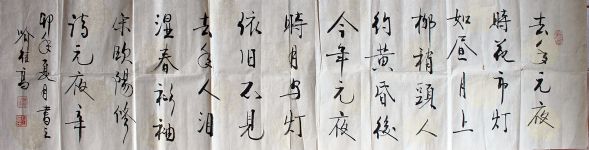 去年元夜
時花市灯
如昼月上
柳梢頭人
约黄昏後
今年元夜
時月与灯
依旧不见
去年人泪
湿春衫袖
宋欧陽修
詩元夜辛
卯年夏月書之